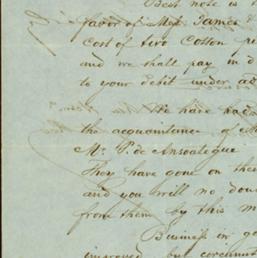 Best note is
favor of Mess. James
cost of two Cotton
and we shall pay in d
to your debit under ad
We have had
the acquaintance of M
Mr. P. de Ansoategue
They have gone on thei
and you will no dou
from them by this m
Business in go
improved but circumst